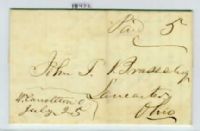 Paid 5
John T. Brasee Esq
Lancaster
Ohio
July 25